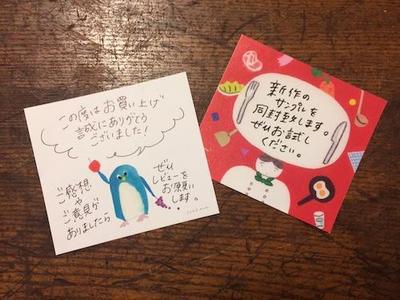 この度はお買い上げ
誠にありがとう
ございました!
ご感想
や
ご意見が
ありましたら
ぜひ
レビューを
お願い
します。
新作の
サンプルを
同封致します。
ぜひお試し
ください。